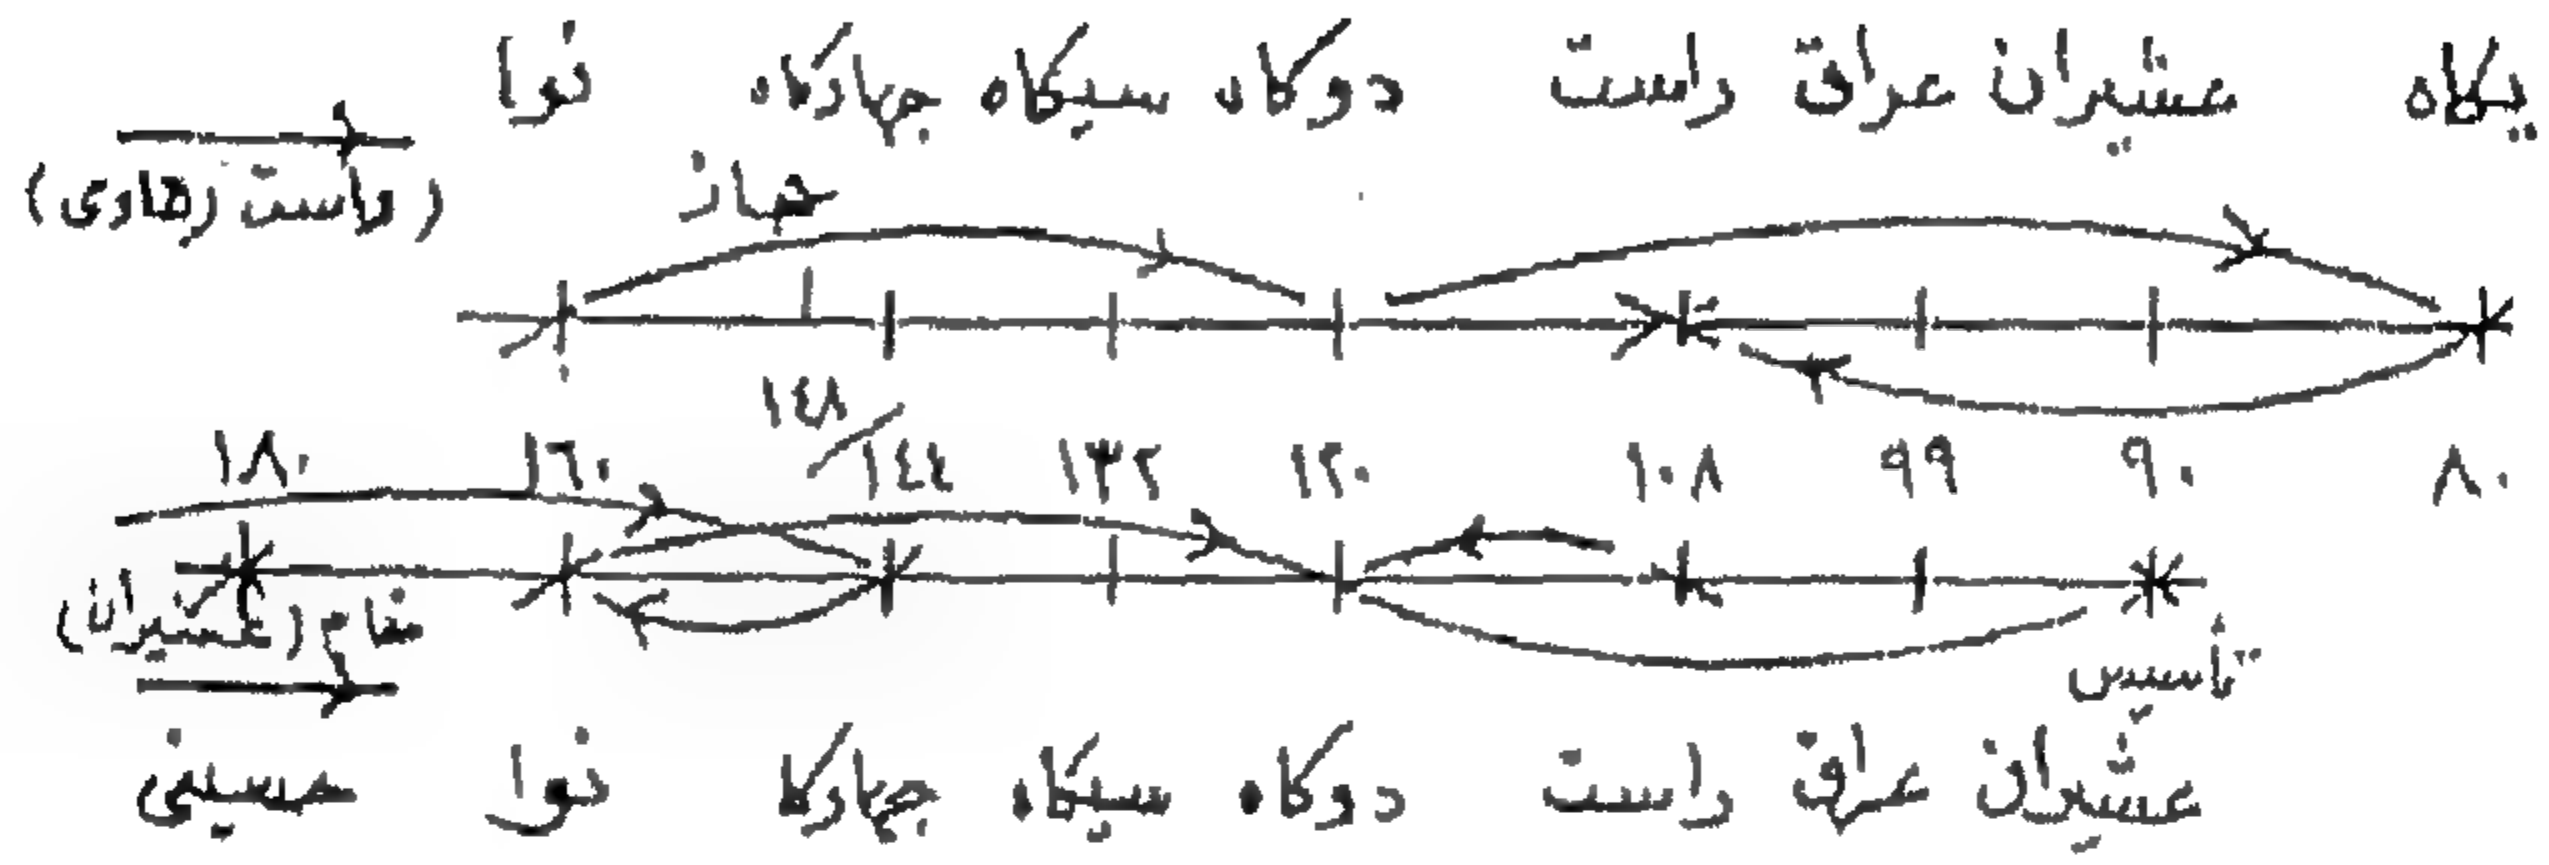 يكاه عشيران عراق راست دوكاه سيكاه جهاركاه نوا
حجاز
(راست رهاوى)
١٤٨
٨٠ ٩٠ ٩٩ ١٠٨ ١٢٠ ١٣٢ ١٤٤ ١٦٠ ١٨٠
مقام (عشيران)
تأسيس
عشيران عراق راست دوكاه سيكاه جهاركا نوا حسينى